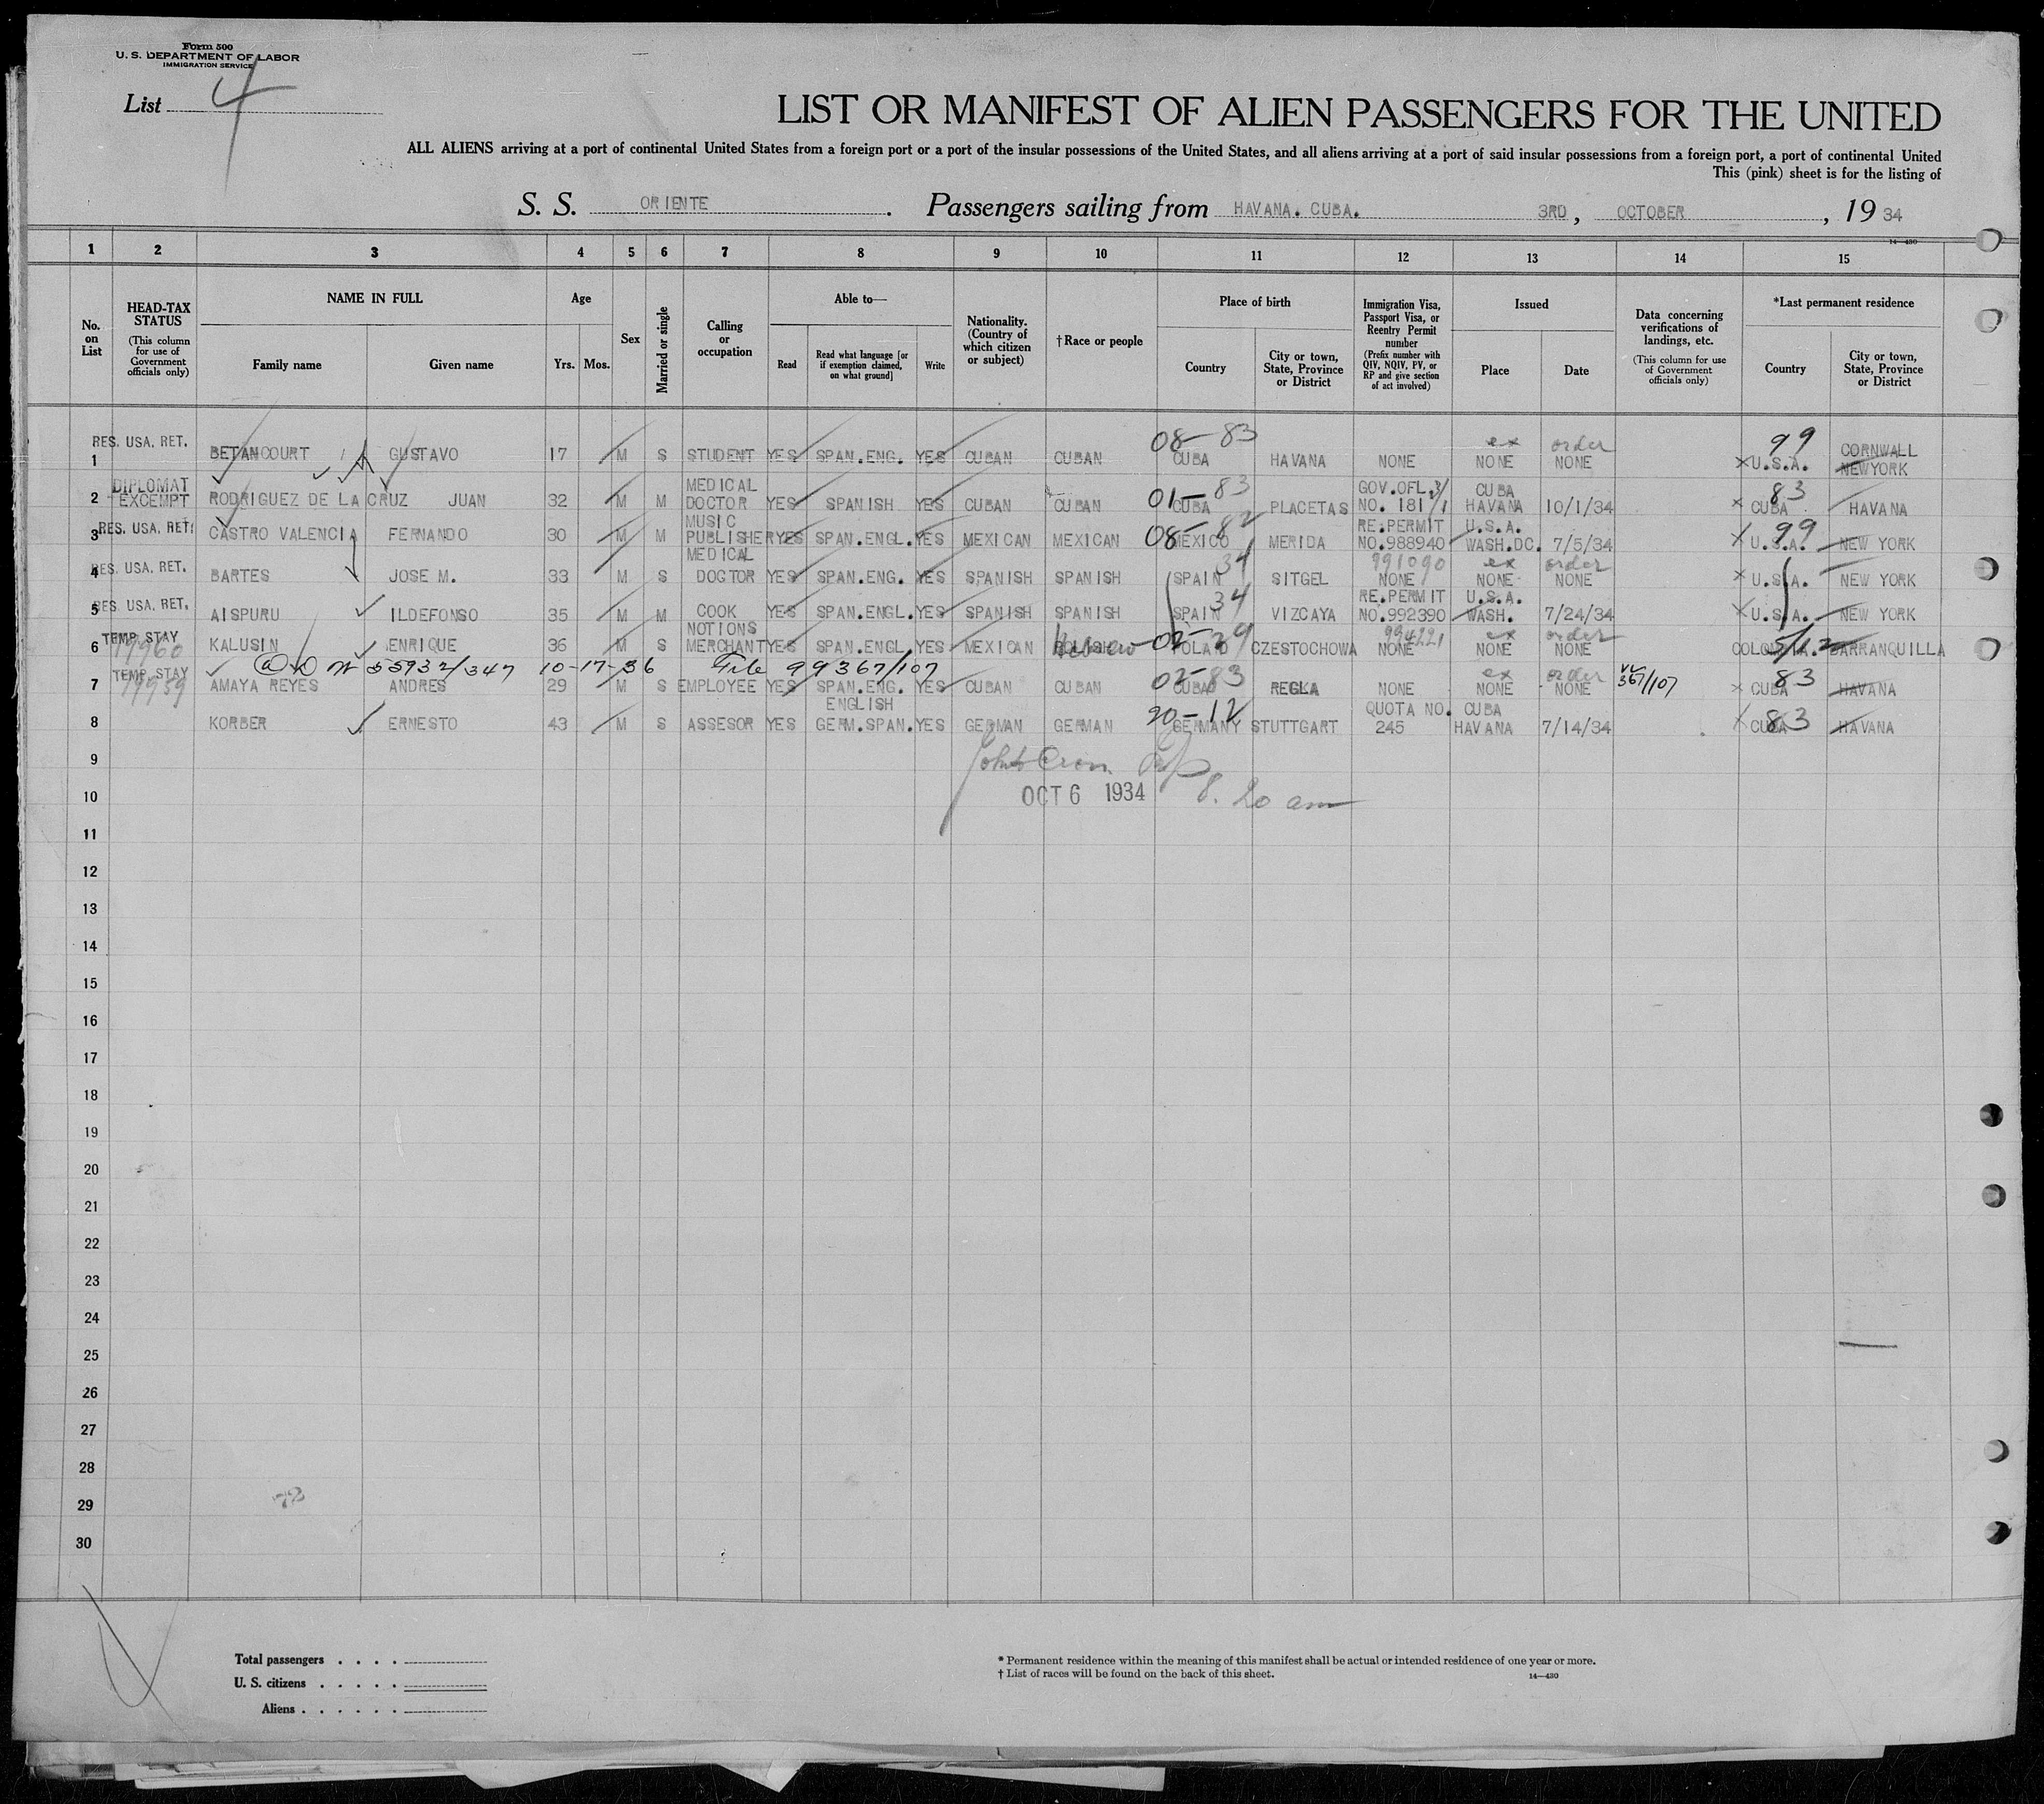 Form 500
U. S. DEPARTMENT OF LABOR
IMMIGRATION SERVICE
List 4
LIST OR MANIFEST OF ALIEN PASSENGERS FOR THE UNITED
ALL ALIENS arriving at a port of continental United States from a foreign port or a port of the insular possessions of the United States, and all aliens arriving at a port of said insular possessions from a foreign port, a port of continental United
This (pink) sheet is for the listing of
S. S. ORIENTE. Passengers sailing from HAVANA. CUBA. 3RD, OCTOBER, 19 34
14—430
1 2 3 4 5 6 7 8 9 10 11 12 13 14 15
No. on List
HEAD-TAX STATUS (This column for use of Government officials only)
NAME IN FULL
Family name Given name
Age
Yrs. Mos.
Sex
Married or single
Calling or occupation
Able to—
Read Read what language [or if exemption claimed, on what ground] Write
Nationality. (Country of which citizen or subject)
†Race or people
Place of birth
Country City or town, State, Province or District
Immigration Visa, Passport Visa, or Reentry Permit number (Prefix number with QIV, NQIV, PV, or RP and give section of act involved)
Issued
Place Date
Data concerning verifications of landings, etc. (This column for use of Government officials only)
*Last permanent residence
Country City or town, State, Province or District
RES. USA. RET. 08-83 ex order 99 CORNWALL
1 BETANCOURT GUSTAVO 17 M S STUDENT YES SPAN.ENG. YES CUBAN CUBAN CUBA HAVANA NONE NONE NONE U.S.A. NEWYORK
DIPLOMAT MEDICAL 01-83 GOV.OFL.3/ CUBA 83
2 EXCEMPT RODRIGUEZ DE LA CRUZ JUAN 32 M M DOCTOR YES SPANISH YES CUBAN CUBAN CUBA PLACETAS NO. 181/1 HAVANA 10/1/34 CUBA HAVANA
RES. USA. RET. MUSIC 08-82 RE.PERMIT U.S.A. 99
3 CASTRO VALENCIA FERNANDO 30 M M PUBLISHER YES SPAN.ENGL. YES MEXICAN MEXICAN MEXICO MERIDA NO.988940 WASH.DC. 7/5/34 U.S.A. NEW YORK
RES. USA. RET. MEDICAL 34 991090 ex order
4 BARTES JOSE M. 33 M S DOCTOR YES SPAN.ENG. YES SPANISH SPANISH SPAIN SITGEL NONE NONE NONE U.S.A. NEW YORK
RES. USA. RET. 34 RE.PERMIT U.S.A.
5 AISPURU ILDEFONSO 35 M M COOK YES SPAN.ENGL. YES SPANISH SPANISH SPAIN VIZCAYA NO.992390 WASH. 7/24/34 U.S.A. NEW YORK
TEMP STAY NOTIONS Hebrew 994221 ex order
6 KALUSIN ENRIQUE 36 M S MERCHANT YES SPAN.ENGL YES MEXICAN POLAND CZESTOCHOWA NONE NONE NONE COLOMBIA. BARRANQUILLA
55932/347 10-17-36 File 99367/107
TEMP. STAY 02-83 ex order 367/107 83
7 AMAYA REYES ANDRES 29 M S EMPLOYEE YES SPAN.ENG. YES CUBAN CUBAN CUBA REGLA NONE NONE NONE CUBA HAVANA
ENGLISH 20-12 QUOTA NO. CUBA 83
8 KORBER ERNESTO 43 M S ASSESOR YES GERM.SPAN. YES GERMAN GERMAN GERMANY STUTTGART 245 HAVANA 7/14/34 CUBA HAVANA
9
OCT 6 1934 8. 20 am
10
11
12
13
14
15
16
17
18
19
20
21
22
23
24
25
26
27
28
29
30
Total passengers . . . .
U. S. citizens . . . . .
Aliens . . . . . .
* Permanent residence within the meaning of this manifest shall be actual or intended residence of one year or more.
† List of races will be found on the back of this sheet. 14—430